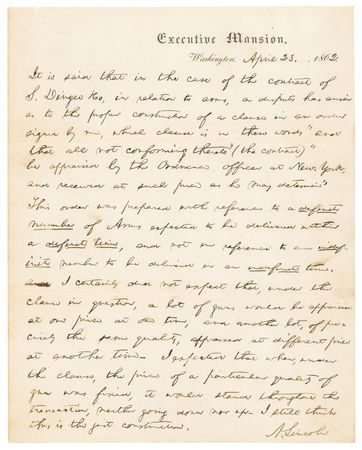 Executive Mansion,
Washington, April 23. , 1862
It is said that in the case of the contract of
S. Dingee & Co, in relation to arms, a dispute has arisen
as to the proper construction of a clause in an order
signed by me, which clause is in these words "and
that all not conforming thereto (the contract)"
be appraised by the Ordnance officer at New York
and received at such price as he may determine"
This order was prepared with reference to a definite
number of Arms expected to be delivered within
a definite time, and not in reference to an indef-
inite number to be delivered in an indefinite time.
I certainly did not expect that, under the
clause in question, a lot of guns would be appraised
at one price at one time, and another lot, of pre-
cisely the same quality, appraised at different price
at another time. I expected that when, under
the clause, the price of a particular quality of
gun was fixed, it would stand throughout the
transaction, neither going down nor up. I still think
this is the just construction.
A. Lincoln